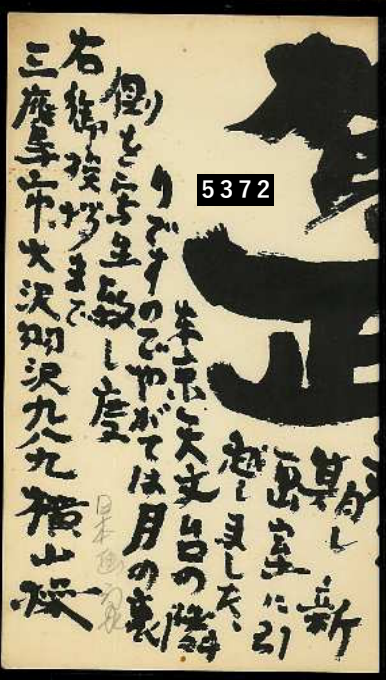 賀正
期し 新
画室に引
越しました、
東京天文台の隣
りですのでやがては月の裏
側を写生致し度
右御挨拶まで
三鷹市大沢羽沢九八九 横山操
日本画家
5372